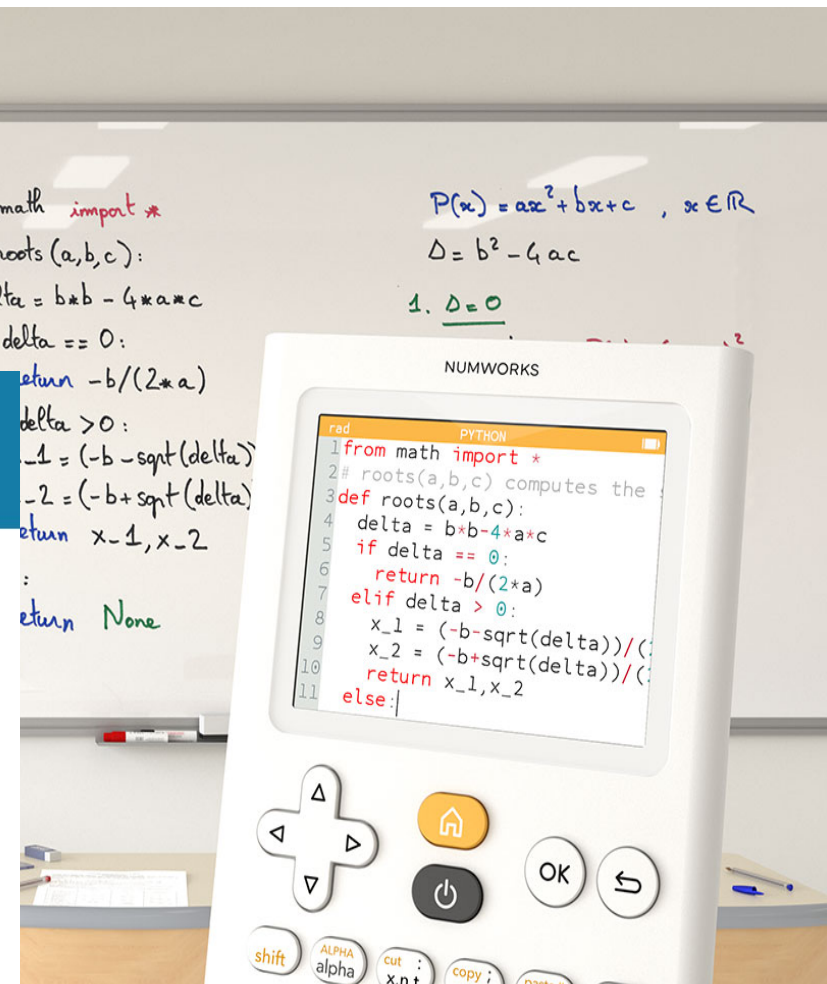 math import *
roots (a,b,c):
lta = b*b - 4*a*c
delta == 0:
eturn -b/(2*a)
delta > 0:
_1 = (-b - sqrt(delta))
_2 = (-b + sqrt(delta)
eturn x_1, x_2
:
eturn None
P(x) = ax² + bx + c , x ∈ ℝ
Δ = b² - 4ac
1. Δ = 0
NUMWORKS
rad PYTHON
1 from math import *
2 # roots(a,b,c) computes the
3 def roots(a,b,c):
4 delta = b*b-4*a*c
5 if delta == 0:
6 return -b/(2*a)
7 elif delta > 0:
8 x_1 = (-b-sqrt(delta))/(
9 x_2 = (-b+sqrt(delta))/(
10 return x_1,x_2
11 else:
OK
shift
ALPHA
alpha
cut :
x,n,t
copy ;